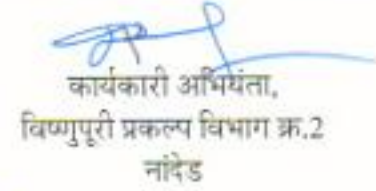 कार्यकारी अभियंता,
विष्णुपूरी प्रकल्प विभाग क्र.2
नांदेड